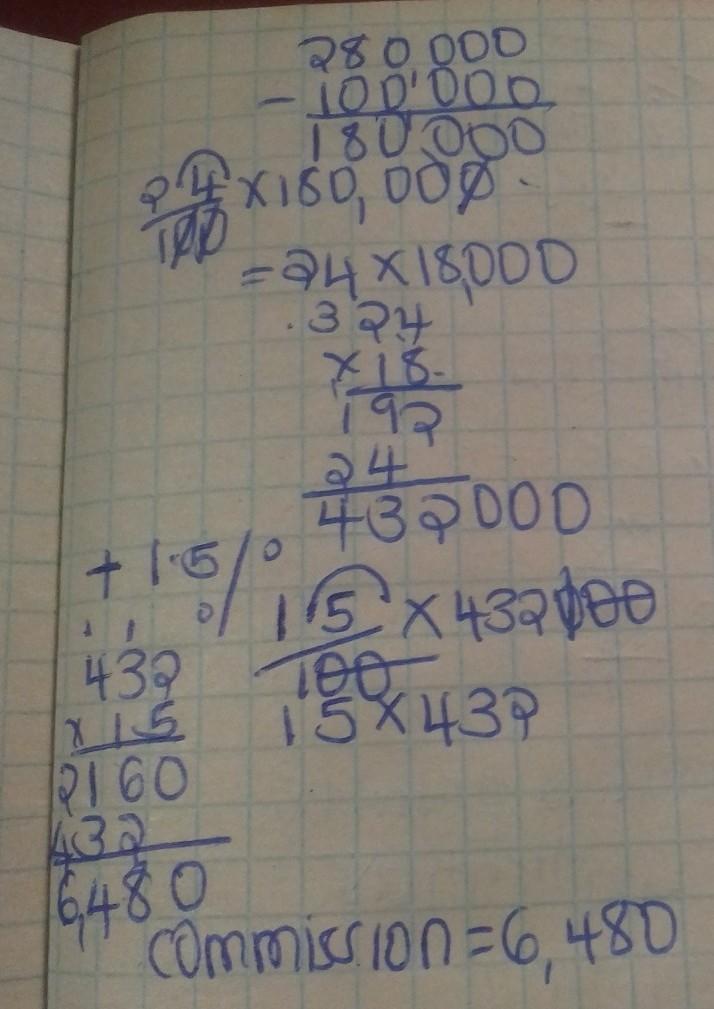 280,000
- 100,000
180,000
24/100 × 180,000
= 24 × 18,000
324
× 18
192
24
432000
+ 1.5%
15/100 × 432000
15 × 432
1 1
432
× 15
2160
432
6,480
commission = 6,480